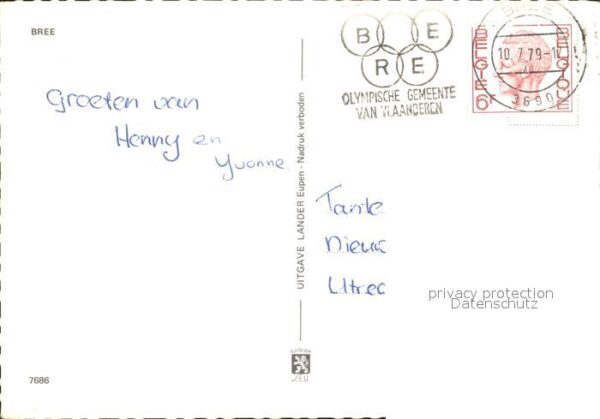 BREE
B E
R E
OLYMPISCHE GEMEENTE
VAN VLAANDEREN
BREE
10.7.79-1
3690
BELGIE 6F BELGIQUE
Groeten van
Henny en
Yvonne
UITGAVE LANDER Eupen - Nadruk verboden
Tante
Nieuw
Utrec
privacy protection
Datenschutz
7686